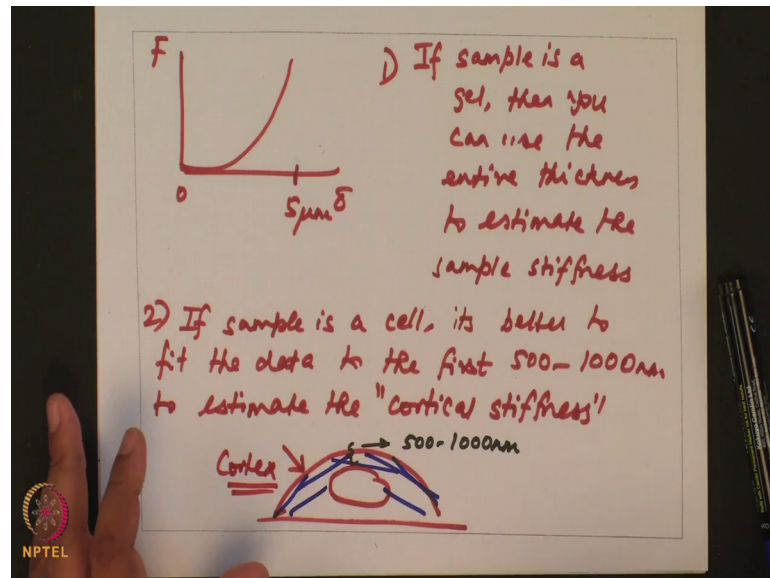 F
0
5μm δ
1) If sample is a
gel, then you
can use the
entire thickness
to estimate the
sample stiffness
2) If sample is a cell, its better to
fit the data to the first 500-1000nm
to estimate the "cortical stiffness"
→ 500-1000nm
Cortex
NPTEL